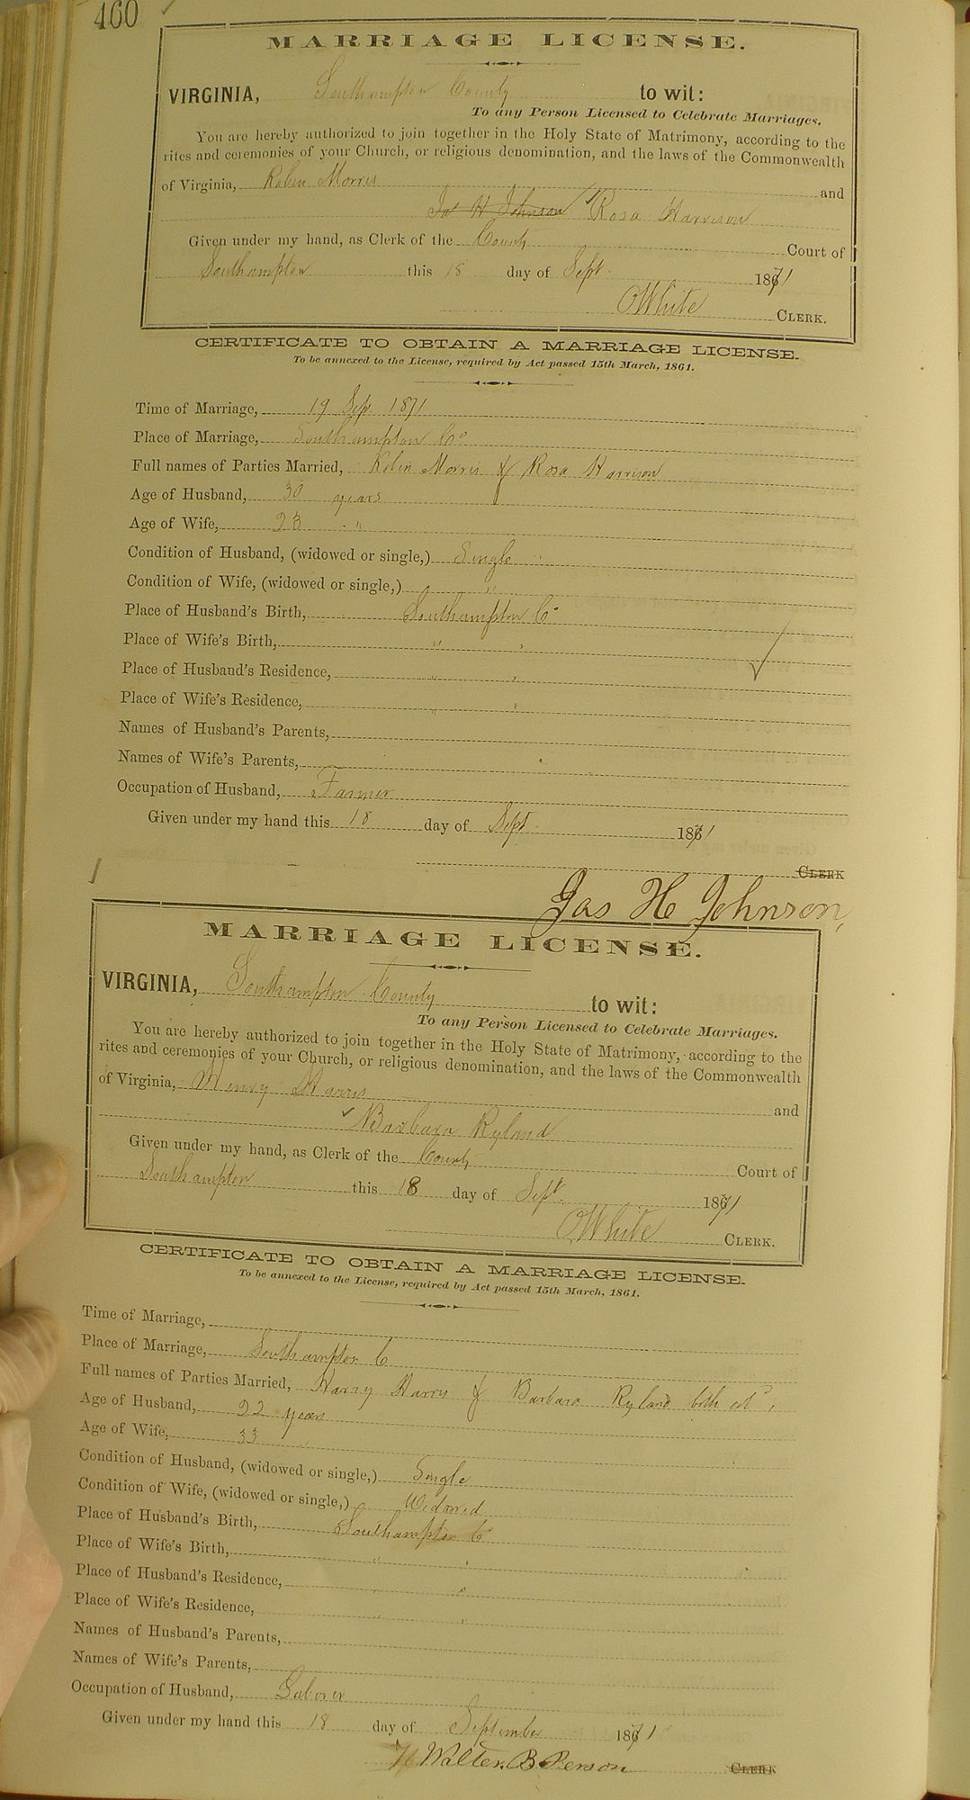 460
MARRIAGE LICENSE.
VIRGINIA, Southampton County to wit:
To any Person Licensed to Celebrate Marriages.
You are hereby authorized to join together in the Holy State of Matrimony, according to the
rites and ceremonies of your Church, or religious denomination, and the laws of the Commonwealth
of Virginia, Robin Morris and
Jas H Johnson Rosa Harrison
Given under my hand, as Clerk of the County Court of
Southampton this 18 day of Sept. 1871
White CLERK.
CERTIFICATE TO OBTAIN A MARRIAGE LICENSE.
To be annexed to the License, required by Act passed 15th March, 1861.
Time of Marriage, 19 Sep. 1871
Place of Marriage, Southampton Co
Full names of Parties Married, Robin Morris & Rosa Harrison
Age of Husband, 30 years
Age of Wife, 23 "
Condition of Husband, (widowed or single,) Single
Condition of Wife, (widowed or single,) "
Place of Husband's Birth, Southampton Co
Place of Wife's Birth, " "
Place of Husband's Residence, " "
Place of Wife's Residence, " "
Names of Husband's Parents,
Names of Wife's Parents,
Occupation of Husband, Farmer
Given under my hand this 18 day of Sept. 1871
CLERK
Jas H Johnson,
MARRIAGE LICENSE.
VIRGINIA, Southampton County to wit:
To any Person Licensed to Celebrate Marriages.
You are hereby authorized to join together in the Holy State of Matrimony, according to the
rites and ceremonies of your Church, or religious denomination, and the laws of the Commonwealth
of Virginia, Harris and
Barbara Ryland
Given under my hand, as Clerk of the County Court of
Southampton this 18 day of Sept. 1871
White CLERK.
CERTIFICATE TO OBTAIN A MARRIAGE LICENSE.
To be annexed to the License, required by Act passed 15th March, 1861.
Time of Marriage,
Place of Marriage, Southampton C
Full names of Parties Married, Harry Harris & Barbara Ryland both
Age of Husband, 22 years
Age of Wife, 33 "
Condition of Husband, (widowed or single,) Single
Condition of Wife, (widowed or single,) Widowed
Place of Husband's Birth, Southampton Co
Place of Wife's Birth, " "
Place of Husband's Residence, " "
Place of Wife's Residence, " "
Names of Husband's Parents,
Names of Wife's Parents,
Occupation of Husband, Laborer
Given under my hand this 18 day of September 1871
Walter. B. Person CLERK